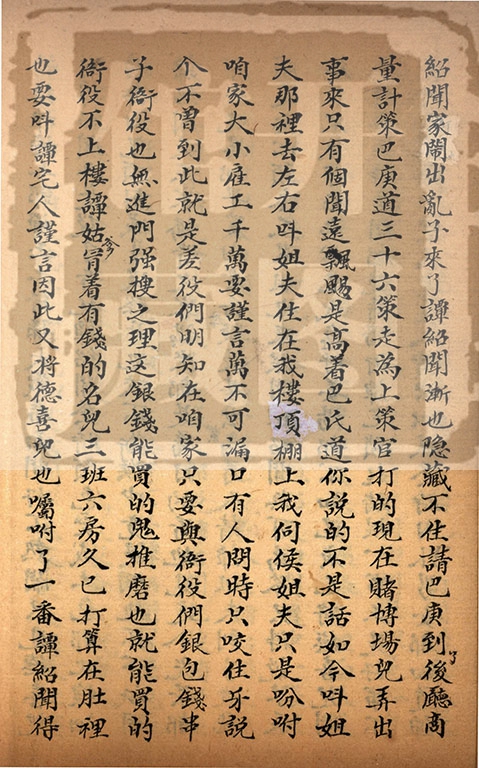 紹聞家鬧出亂子來了譚紹聞漸也隐藏不住請巴庚到了後廳商
量計策巴庚道三十六策走為上策官打的現在賭博場兒弄出
事來只有個聞遠飄颺是高着巴氏道你說的不是話如今呌姐
夫那裡去左右呌姐夫住在我樓頂棚上我伺侯姐夫只是吩咐
咱家大小雇工千萬要謹言萬不可漏口有人問時只咬住牙說
个不曾到此就是差役們明知在咱家只要與衙役們銀包錢串
子衙役也無進門强搜之理这銀錢能買的鬼推磨也就能買的
衙役不上樓譚姑爷冐着有錢的名兒三班六房久已打算在肚裡
也要呌譚宅人謹言因此又将德喜兒也囑咐了一番譚紹聞得